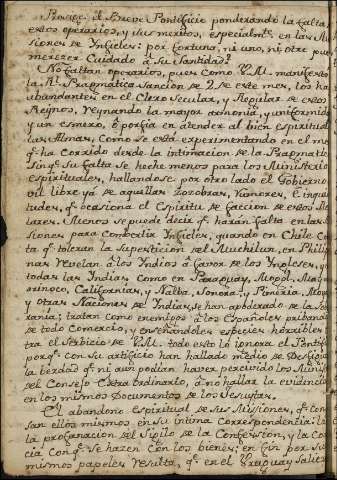 Prosige el Breve Pontificio ponderando la falta
estos operarios, y sus meritos, especialmte en las Mi
siones de Ynfieles: por fortuna, ni uno, ni otro pue
merezer Cuidado à Su Santidad?
No faltan operarios, pues como V.M. manifesto
la Rl. Pragmatica Sancion de 2 de este mes, los ha
abundantes en el Clero Secular, y Regular de estos
Reynos, Reynando la mayor armonia, y uniformid
y un esmero, ô porfia en atender al bien espiritual
las Almas, como se està experimentando en el mo
q.e ha Corrido desde la intimacion de la Pragmatic
Sin q.e Su falta Se heche menos para los Ministerio
espirituales, hallandose por otro lado el Gobierno
vil libre ya de aquellas Zozobras, Rumores, è inquie
tudes, q.e ocasiona el Espiritu de faccion de estos
lares. Menos se puede decir q.e haran falta en las
siones para Combatir Ynfieles, quando en Chile Co
ta q.e toleran la Supersticion del Machitun, en Philip
nas Revelan à los Indios à favor de los Yngleses, y
todas las Yndias Como en Paraguay, Moxos, May
orinoco, Californias, y Nalba, Sonora, y Pimeria,
y otras Naciones de Yndias, se han apoderado de la So
rania; tratan como enemigos à los Españoles priban
de todo Comercio, y enseñandoles especies horribles
tra el Serbicio de V.M. todo esto lo ignora el Pontifi
porq.e con su artificio han hallado medio de Desfig
la berdad q.e ni aun podian haver percivido los Minis
del Consejo Extra ordinario, à no hallar la evidencia
en los mismos Documentos de los Jesuytas.
El abandono Espiritual de Sus Missiones, q.e con
san ellos mismos en su intima Correspondencia: la
la profanacion del Sigilo de la Confession, y la Co
cia con q.e se hazen con los bienes; en fin por su
mismos papeles resulta, q.e en el Uruguay Salie